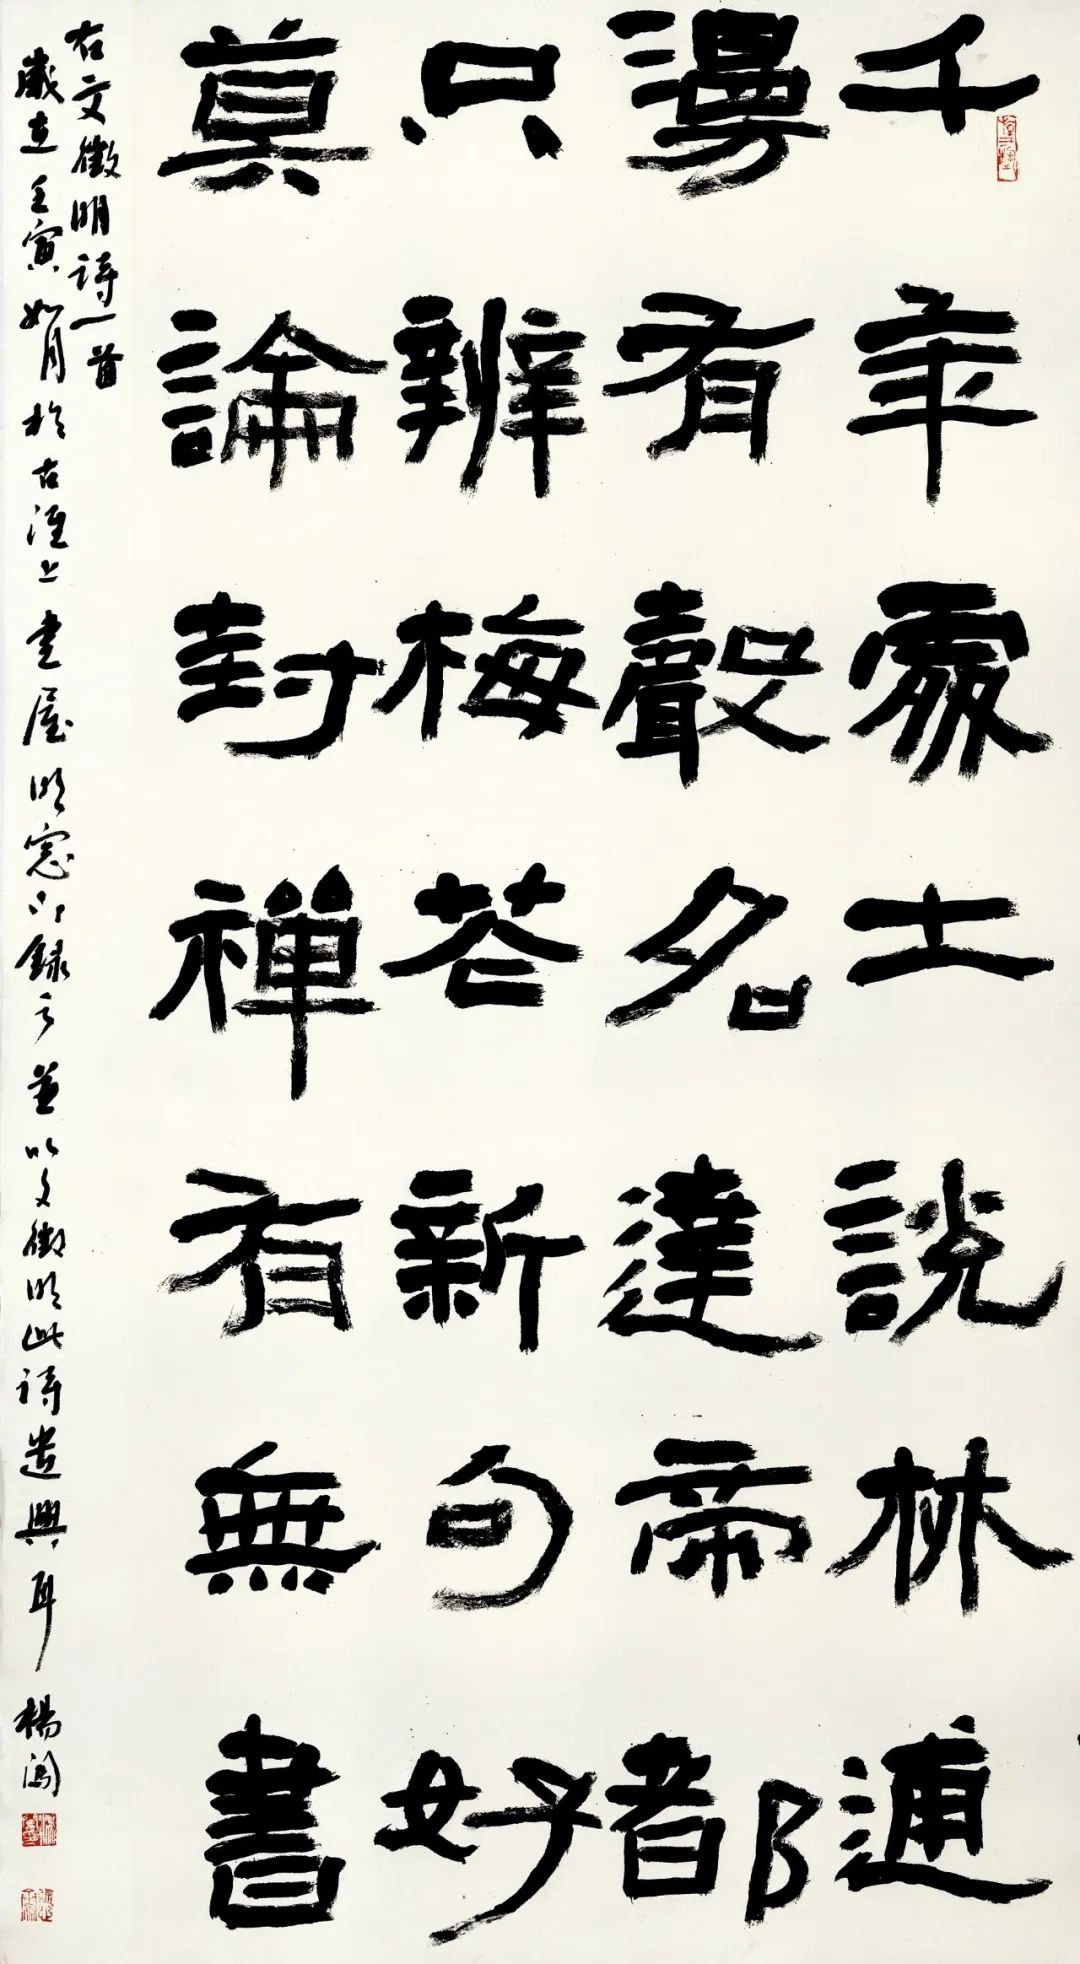 千年處士說林逋
漫有聲名達帝都
只辨梅花新句好
莫論封禪有無書
右文徵明詩一首
歲在壬寅如月於古淮上書屋明窓下錄之並以文徵明此詩遣興耳 楊闊